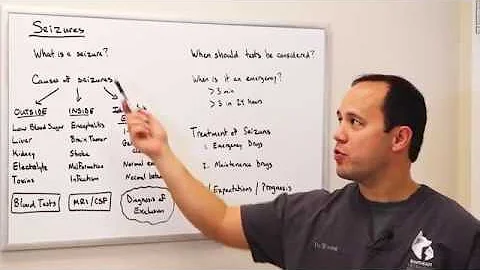 Seizures
What is a seizure?
Causes of seizures
OUTSIDE
Low Blood Sugar
Liver
Kidney
Electrolyte
Toxins
Blood Tests
INSIDE
Encephalitis
Brain Tumor
Stroke
Malformation
Infection
MRI/CSF
Normal
Normal
Diagnosis of
Exclusion
When should tests be considered?
When is it an emergency?
> 3 min
> 5 in 24 hours
Treatment of Seizures
1. Emergency Drugs
2. Maintenance Drugs
/ Expectations / Prognosis